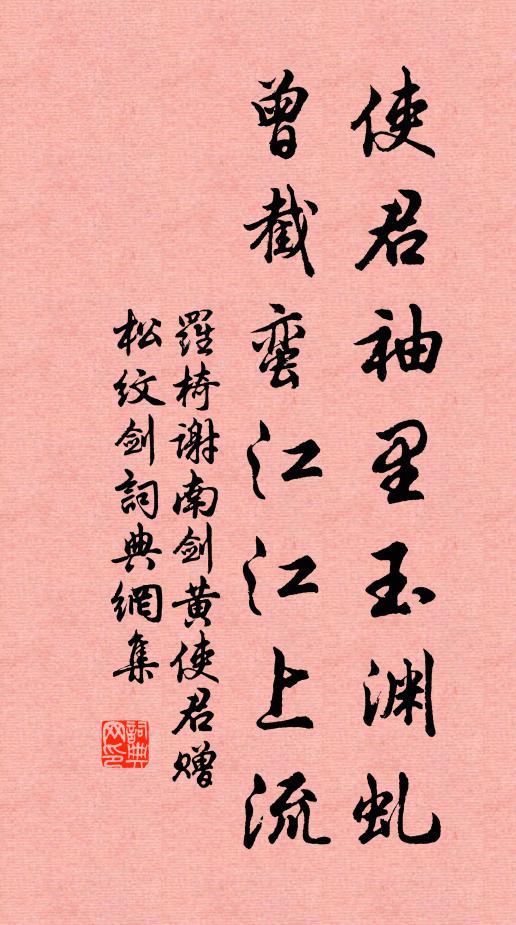 使君袖里玉渊虬
曾截蛮江江上流
羅椅谢南剑黄使君赠
松纹剑詞典網集
詞典网印